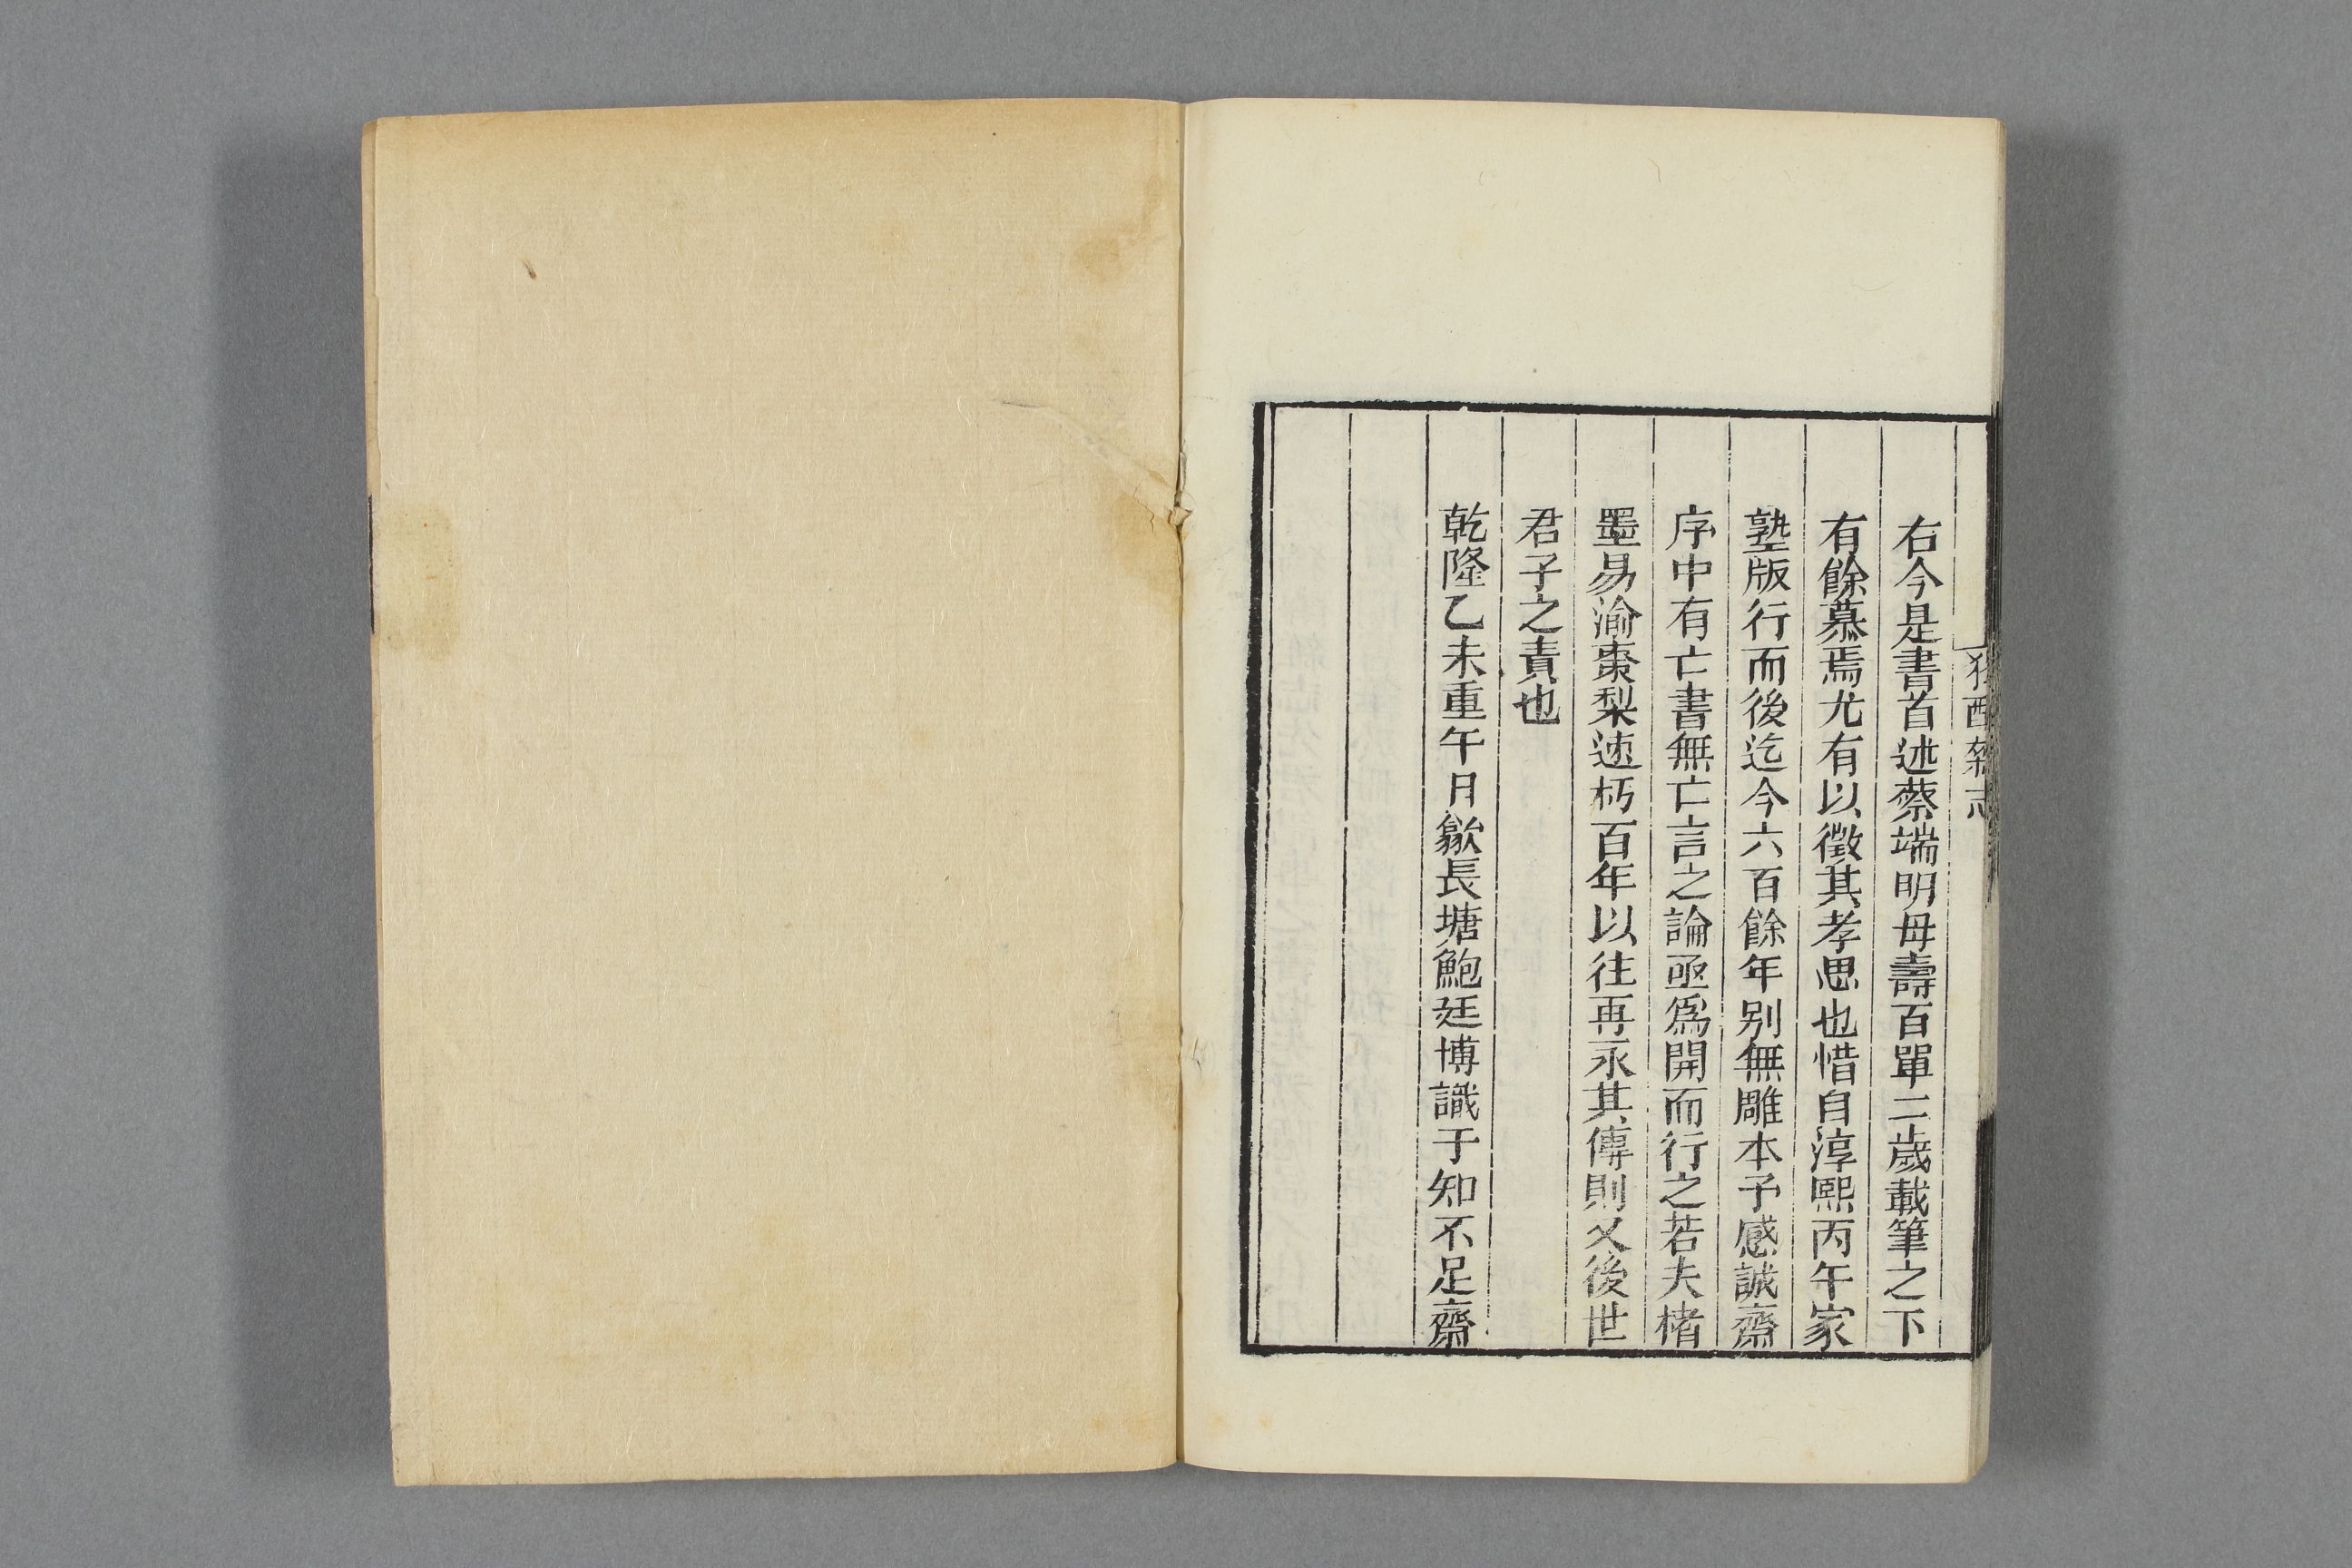 獨醒雜志
右今是書首述蔡端明母壽百單二歲載筆之下
有餘慕焉尤有以徵其孝思也惜自淳熙丙午家
塾版行而後迄今六百餘年别無雕本予感誠齋
序中有亡書無亡言之論亟爲開而行之若夫楮
墨易渝棗梨速朽百年以往再永其傳則又後世
君子之責也
乾隆乙未重午日歙長塘鮑廷博識于知不足齋